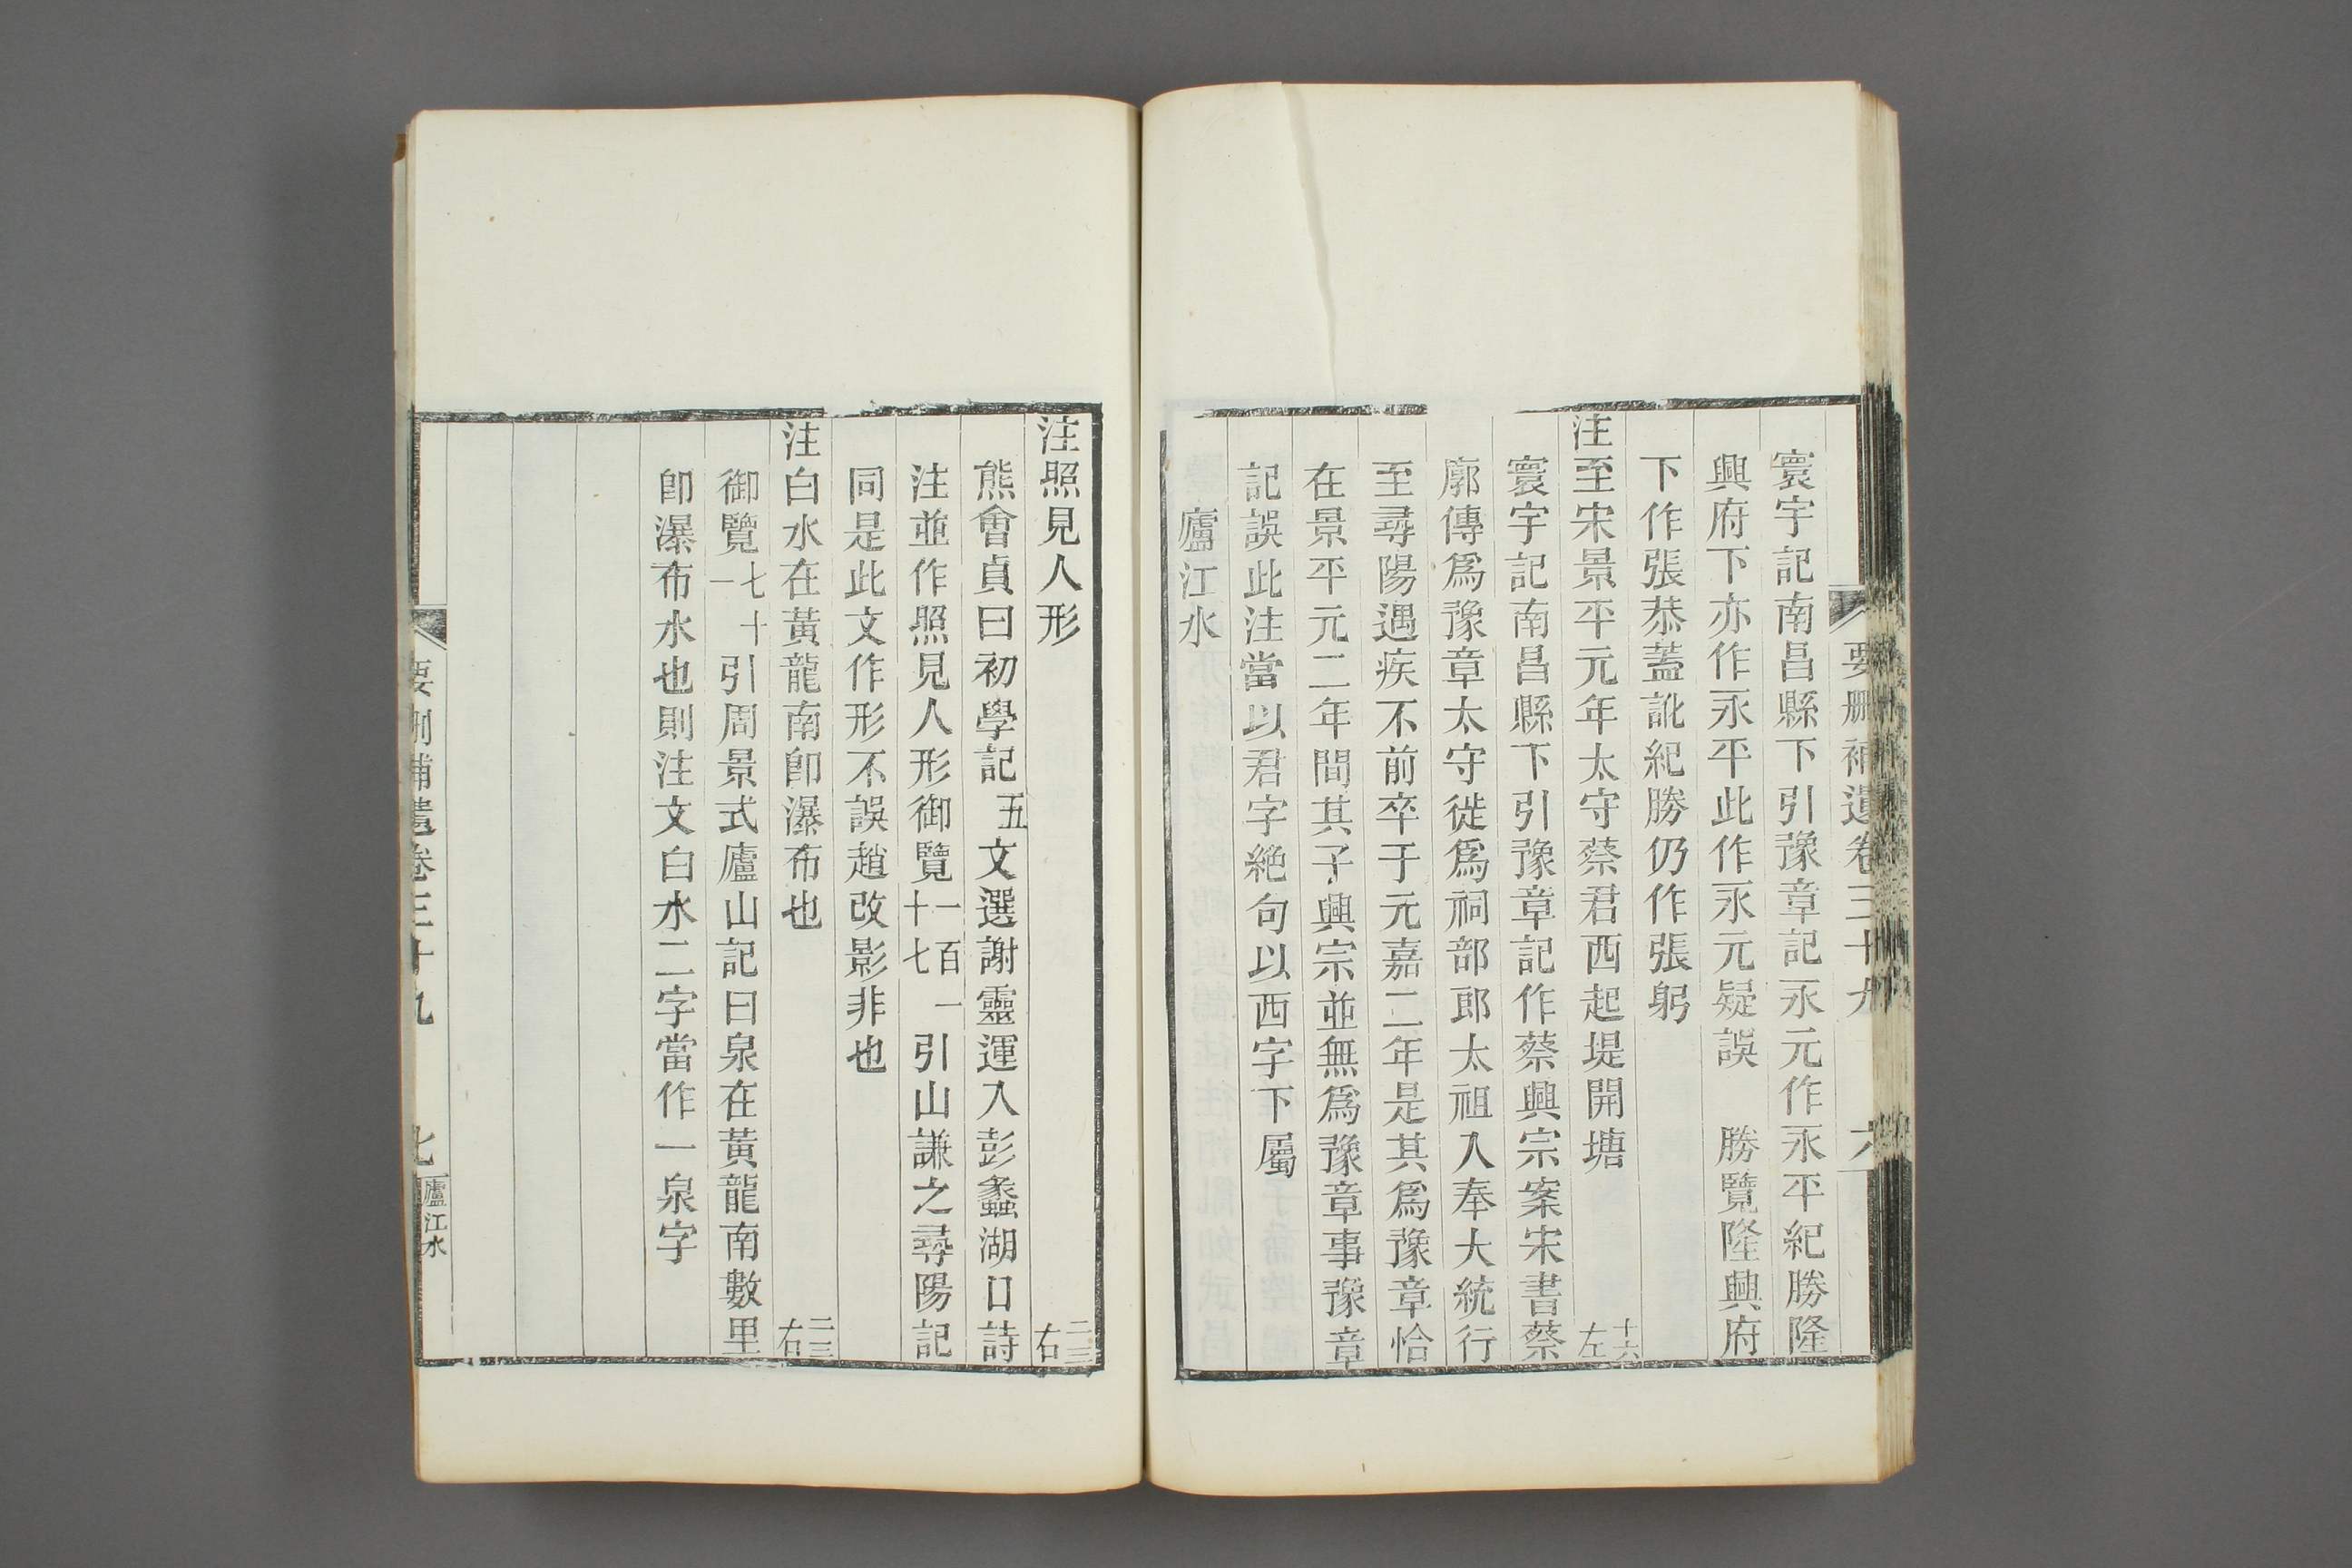 要刪補遺卷三十九 六
寰宇記南昌縣下引豫章記永元作永平紀勝隆
興府下亦作永平此作永元疑誤 勝覽隆興府
下作張恭蓋訛紀勝仍作張躬
注至宋景平元年太守蔡君西起堤開塘 十六左
寰宇記南昌縣下引豫章記作蔡興宗案宋書蔡
廓傳爲豫章太守徙爲祠部郎太祖入奉大統行
至尋陽遇疾不前卒于元嘉二年是其爲豫章恰
在景平元二年間其子興宗並無爲豫章事豫章
記誤此注當以君字絶句以西字下屬
廬江水
注照見人形 二三右
熊會貞曰初學記五文選謝靈運入彭蠡湖口詩
注並作照見人形御覽一百一十七引山謙之尋陽記
同是此文作形不誤趙改影非也
注白水在黃龍南卽瀑布也 二三右
御覽七十一引周景式廬山記曰泉在黃龍南數里
卽瀑布水也則注文白水二字當作一泉字
要刪補遺卷三十九 七 廬江水